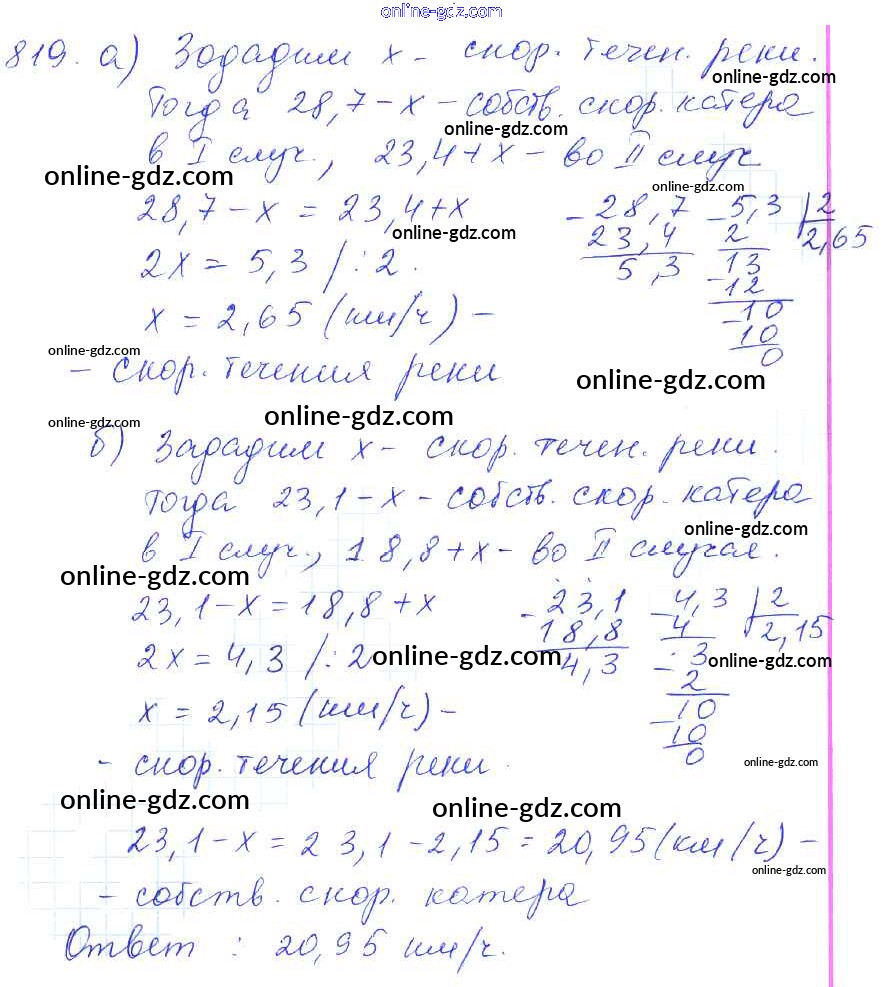 online-gdz.com
819. а) Зададим х - скор. течен. реки.
online-gdz.com
Тогда 28,7 - х - собств. скор. катера
online-gdz.com
в I случ., 23,4 + х - во II случ
online-gdz.com
online-gdz.com
28,7 - х = 23,4 + х
online-gdz.com
- 28,7
23,4
5,3
- 5,3 | 2
2 2,65
13
- 12
- 10
10
0
2х = 5,3 /: 2.
х = 2,65 (км/ч) -
online-gdz.com
- скор. течения реки
online-gdz.com
online-gdz.com
online-gdz.com
б) Зададим х - скор. течен. реки.
Тогда 23,1 - х - собств. скор. катера
online-gdz.com
в I случ., 18,8 + х - во II случае.
online-gdz.com
23,1 - х = 18,8 + х
- 23,1
18,8
4,3
- 4,3 | 2
4 2,15
- 3
2
- 10
10
0
2х = 4,3 /: 2
online-gdz.com
online-gdz.com
х = 2,15 (км/ч) -
- скор. течения реки.
online-gdz.com
online-gdz.com
online-gdz.com
23,1 - х = 23,1 - 2,15 = 20,95 (км/ч) -
online-gdz.com
- собств. скор. катера
Ответ : 20,95 км/ч.